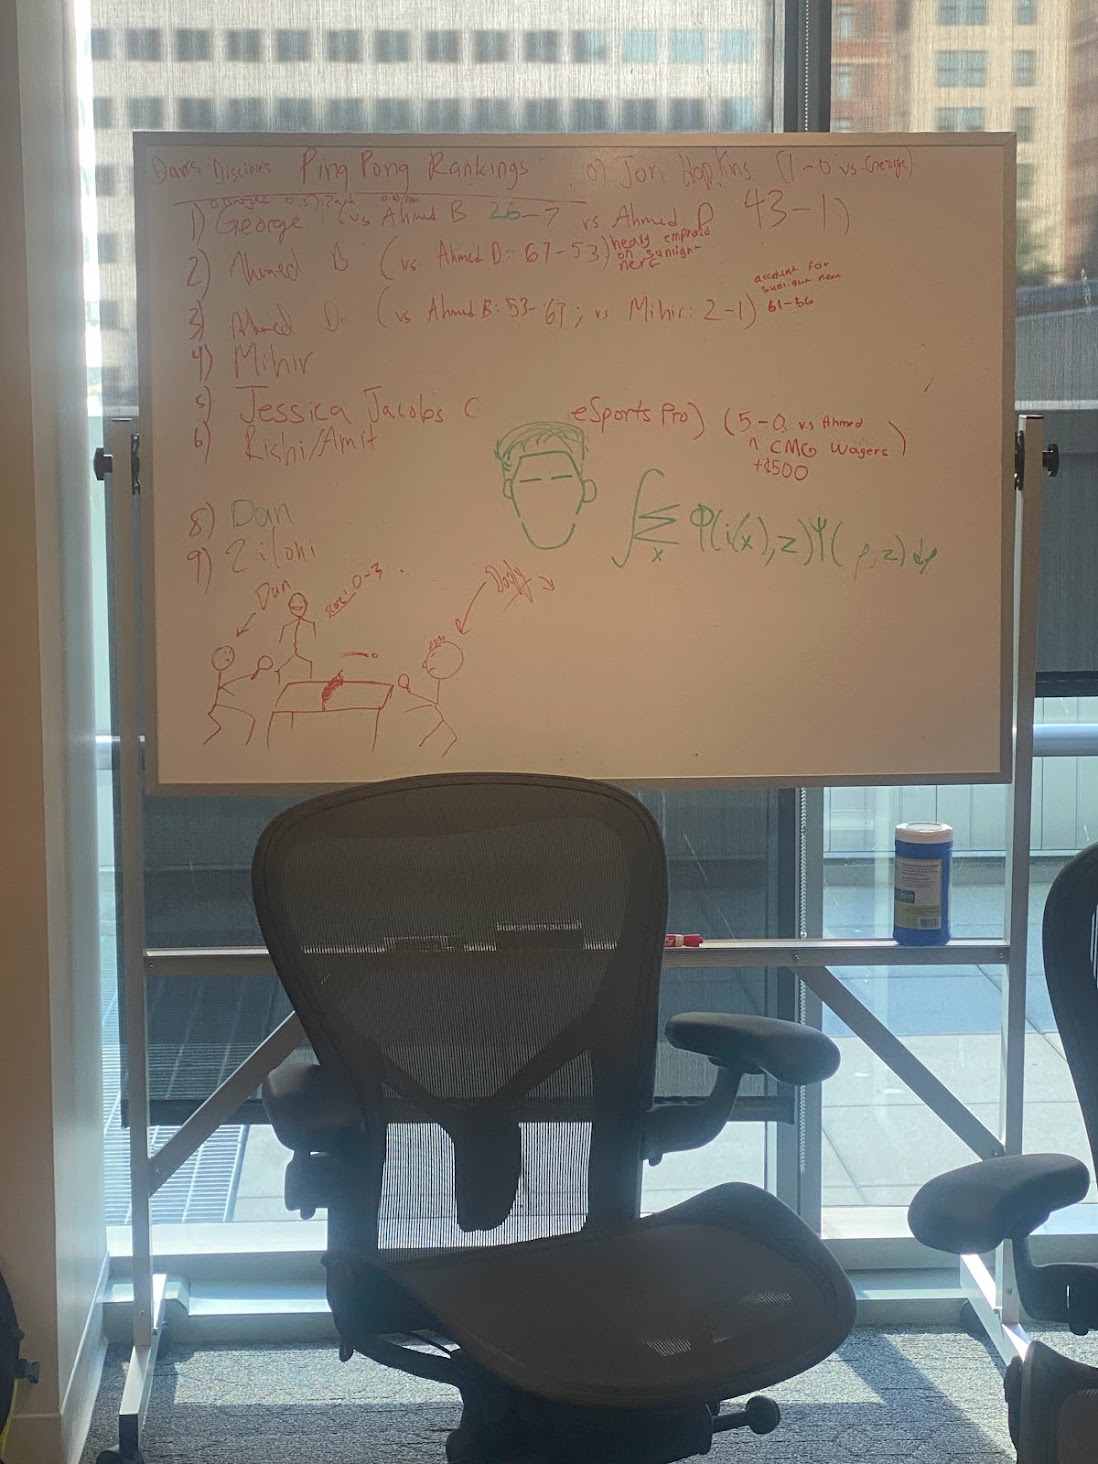 Dan's Discious Ping Pong Rankings 0) Jon Hopkins (1-0 vs George)
0.5) Zach
1) George (vs Ahmed B 26-7 vs Ahmed D 43-1)
2) Ahmed B (vs Ahmed D: 67-53) heavy emphasis on sunlight nerf
3) Ahmed D (vs Ahmed B: 53-67; vs Mihir: 2-1) account for sunlight nerf 61-56
4) Mihir
5) Jessica Jacobs ( eSports Pro) (5-0 vs Ahmed
n CMG Wagers)
+$500
6) Rishi/Amit
∫∑x Φ(i(x),z)Ψ( ρ,z)dρ
8) Dan
9) Ziloni
Dan
0-3